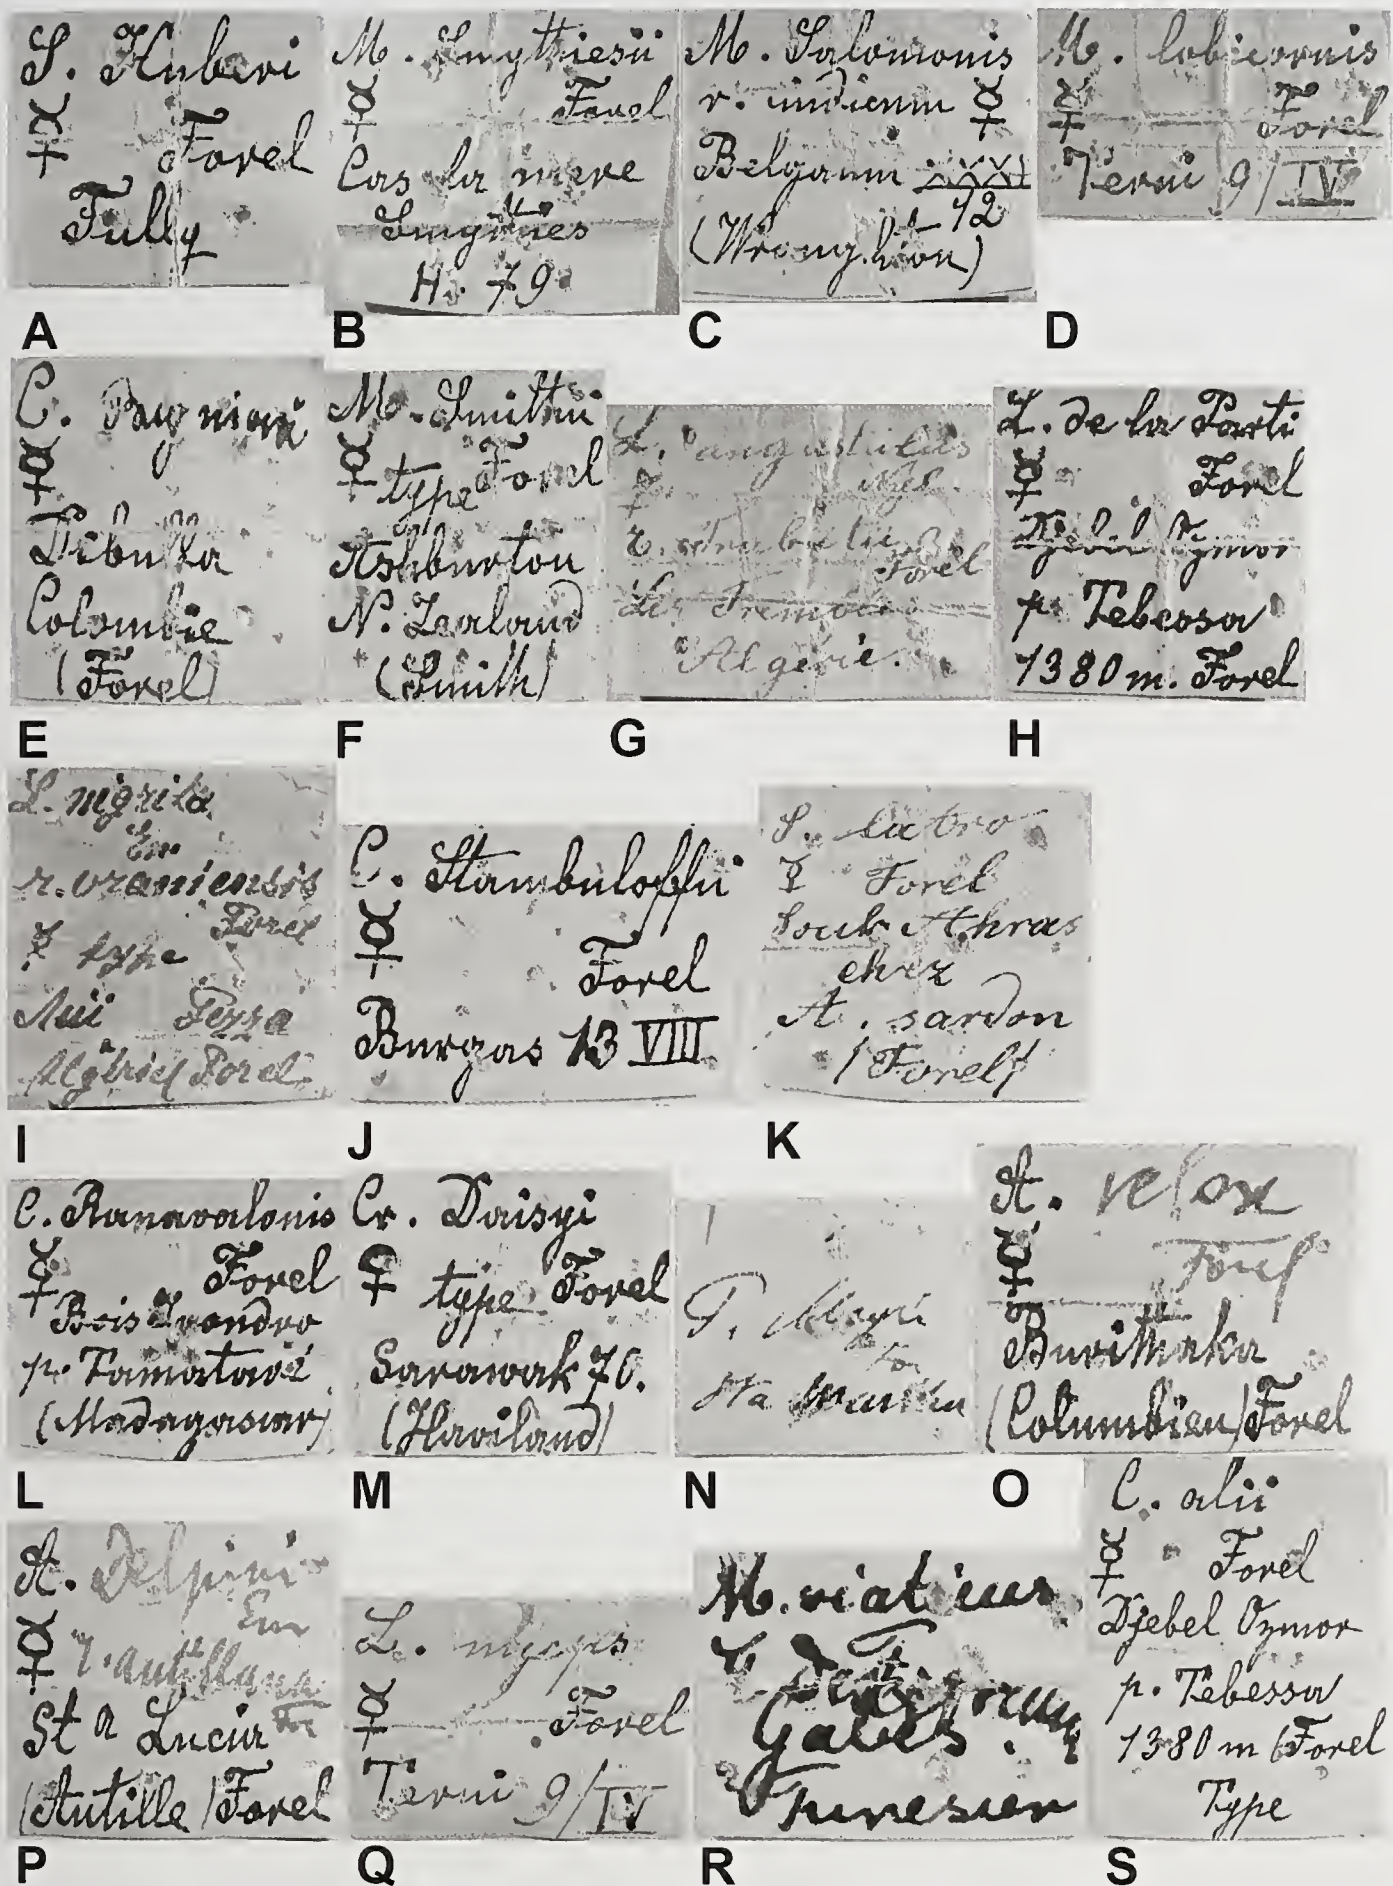 S. Huberi
☿ Forel
Fully
A
M. Smythiesii
☿ Forel
Cas la mere
Smythies
H. 79
B
M. Salomonis
r. indicum ☿
Belgaum
12
(Wroughton)
C
M. lobicornis
☿ Forel
Terni 9/IV
D
C.
☿
Dibulla
Colombie
(Forel)
E
M. Smithii
☿ type Forel
Ashburton
N. Zealand
(Smith)
F
L. angustulus
Nyl.
☿
Forel
Les
Algérie.
G
L. de la Parti
☿ Forel
Djebel Ozmor
p. Tebessa
1380 m. Forel
H
L. nigrita
Em
r. oraniensis
Forel
☿ type
Forel
I
C. Stambuloffii
☿ Forel
Burgas 13 VIII
J
S. latro
☿ Forel
Souk Ahras
chez
A. sardon
(Forel)
K
C. Ranavalonis
☿ Forel
Bois Ivondro
p. Tamatave
(Madagascar)
L
Cr. Daisyi
♀ type Forel
Sarawak 70.
(Haviland)
M
P. Mayri
For
Sta Martha
N
A. velox
☿ Forel
(Columbien) Forel
O
A. Delpini
Em
☿ r. antillana
For
Sta Lucia
(Antille) Forel
P
L.
☿ Forel
Terni 9/IV
Q
M. viaticus
Gabes.
Tunesien
R
C. alii
☿ Forel
Djebel Ozmor
p. Tebessa
1380 m (Forel
Type
S